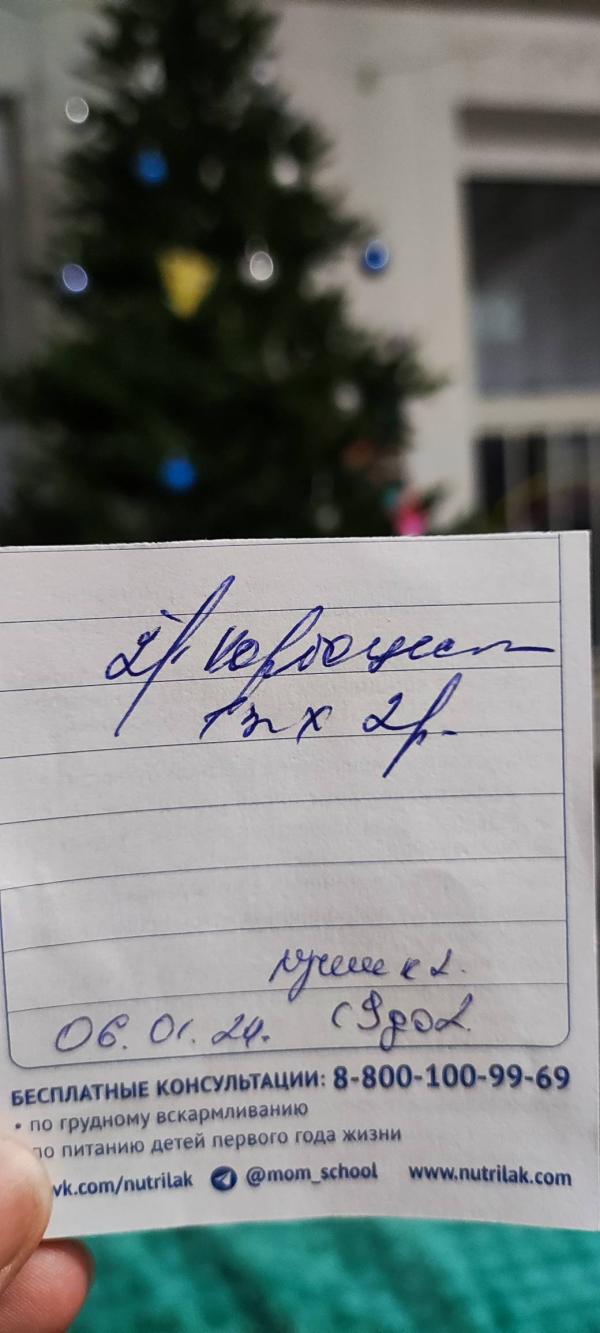 х 2р.
06. 01. 24. с 9 до 2
БЕСПЛАТНЫЕ КОНСУЛЬТАЦИИ: 8-800-100-99-69
• по грудному вскармливанию
по питанию детей первого года жизни
vk.com/nutrilak @mom_school www.nutrilak.com